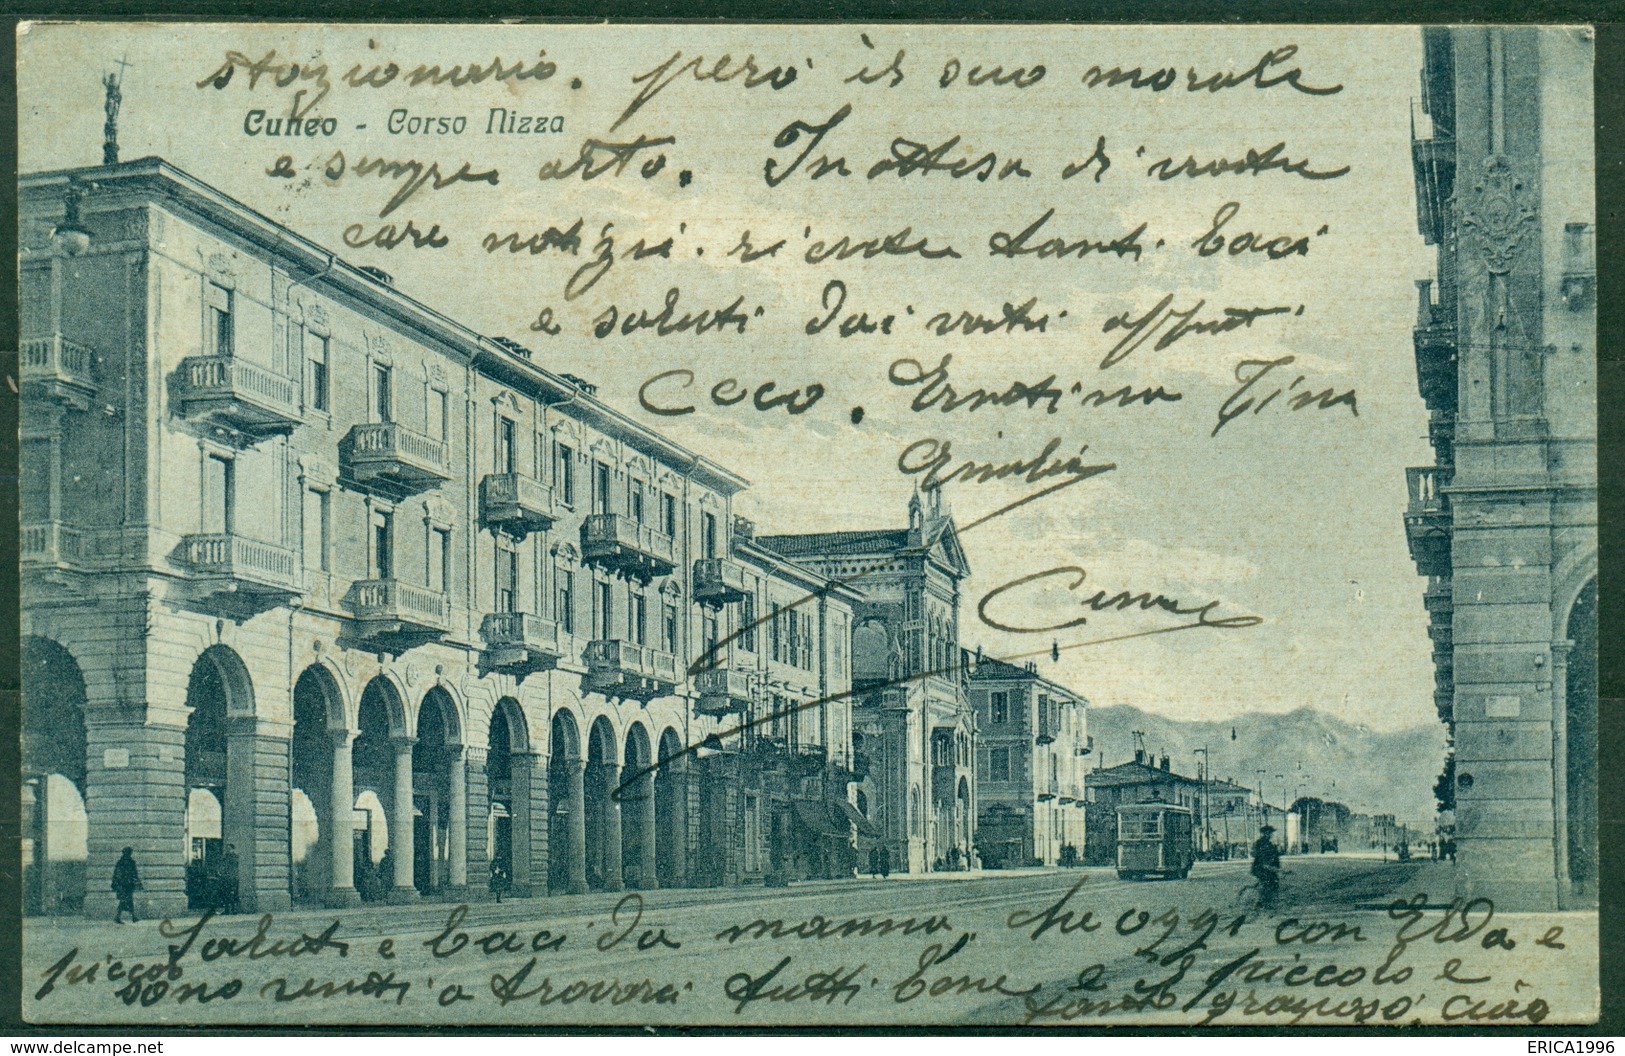 stazionario. però il suo morale
Cuneo - Corso Nizza
e sempre alto. In attesa di vostre
care notizie. ricevete tanti baci
e saluti dai vostri
Ceco. Ernestina Tina
Saluti e baci da mamma, che oggi con Elda e
piccolo
sono venuti a trovarci tutti bene e il piccolo e
tanto grazioso, ciao
delcampe.net
ERICA1996